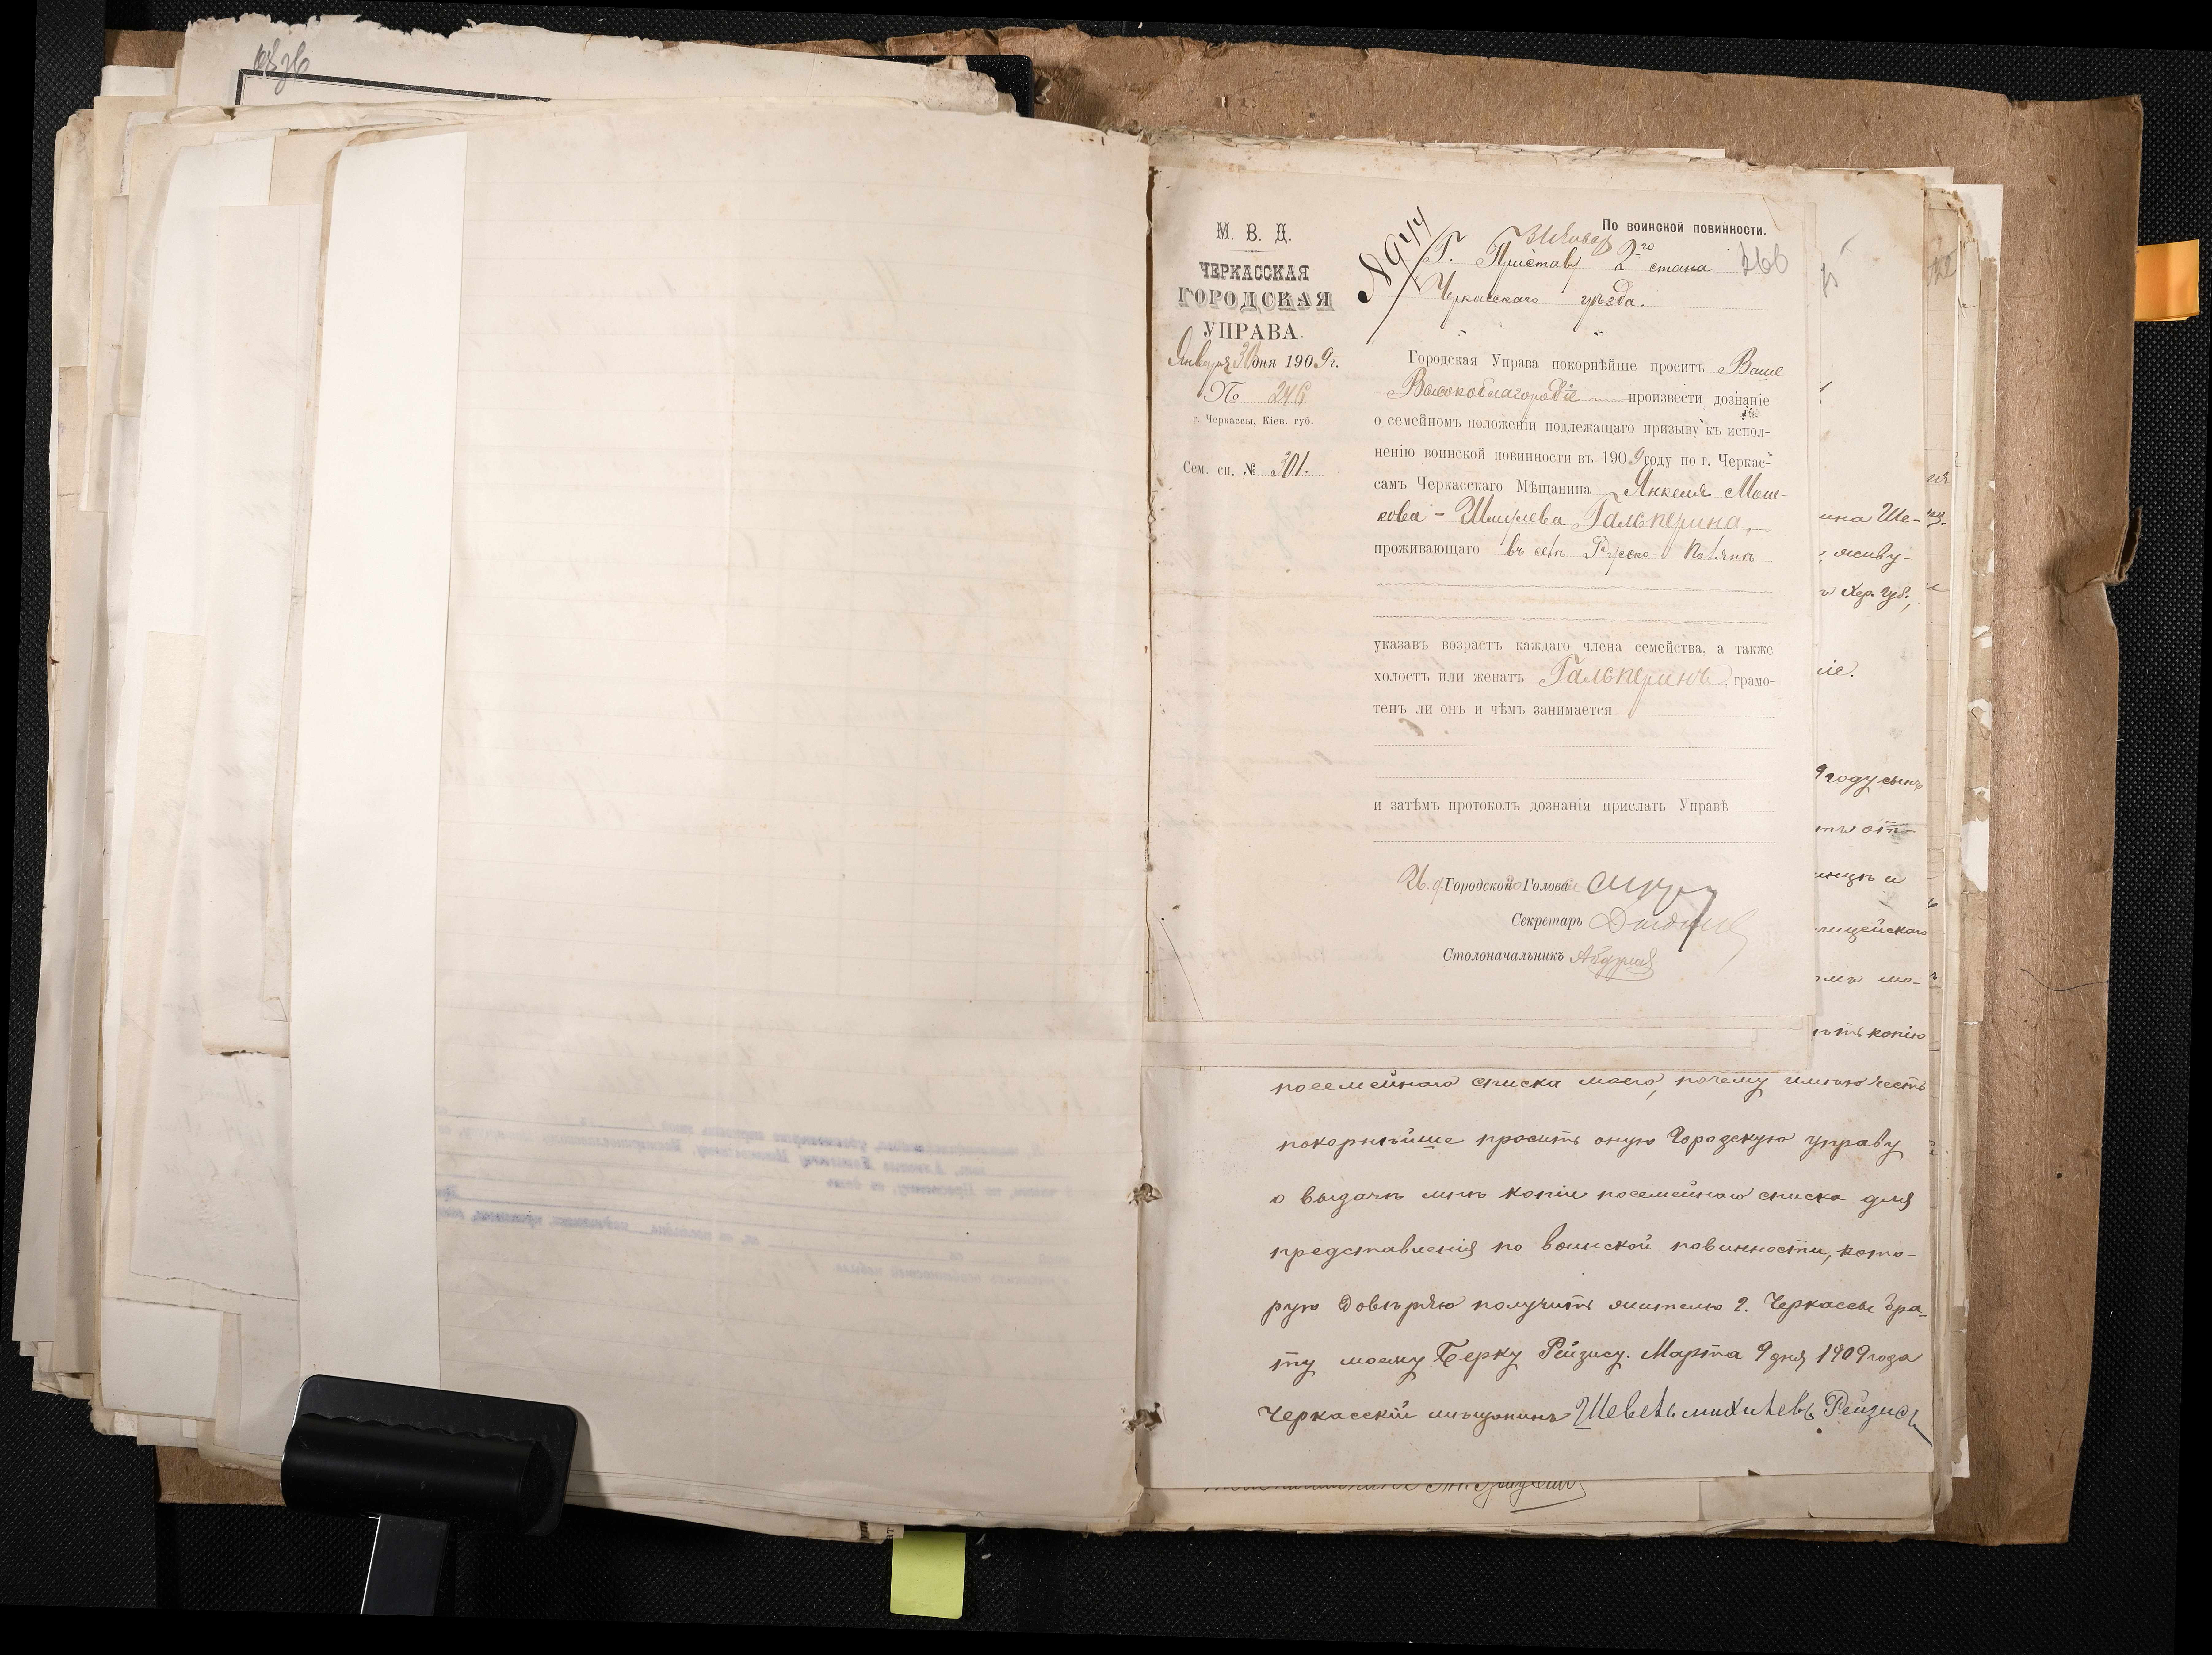 М. В. Д.
ЧЕРКАССКАЯ
ГОРОДСКАЯ
УПРАВА.
Января 31 дня 1909 г.
№ 246
г. Черкассы, Кіев. губ.
Сем. сп. № 201.
По воинской повинности.
№ 944
Г. Приставу 2го стана
Черкасскаго уѣзда.
Городская Управа покорнѣйше проситъ Ваше
Высокоблагородіе произвести дознаніе
о семейномъ положеніи подлежащаго призыву къ испол-
ненію воинской повинности въ 1909 году по г. Черкас-
самъ Черкасскаго Мѣщанина Янкеля Мош-
кова - Шмулева Гальперина,
проживающаго въ селѣ Русско-Полянѣ
указавъ возрастъ каждаго члена семейства, а также
холостъ или женатъ Гальперинъ, грамо-
тенъ ли онъ и чѣмъ занимается
и затѣмъ протоколъ дознанія прислать Управѣ
Городской Голова
Секретарь
Столоначальникъ
ина Ше-
живу-
Хер. губ.,
ніе.
9 году сынъ
от-
лицейскаго
мо-
копію
посемейнаго списка моего, почему имѣю честь
покорнѣйше просить оную Городскую управу
о выдачѣ мнѣ копіи посемейнаго списка для
представленія по воинской повинности, кото-
рую довѣряю получить жителю г. Черкассы бра-
ту моему Берку Рейзису. Марта 9 дня 1909 года
Черкасскій мѣщанинъ Шевель михилевъ Рейзисъ